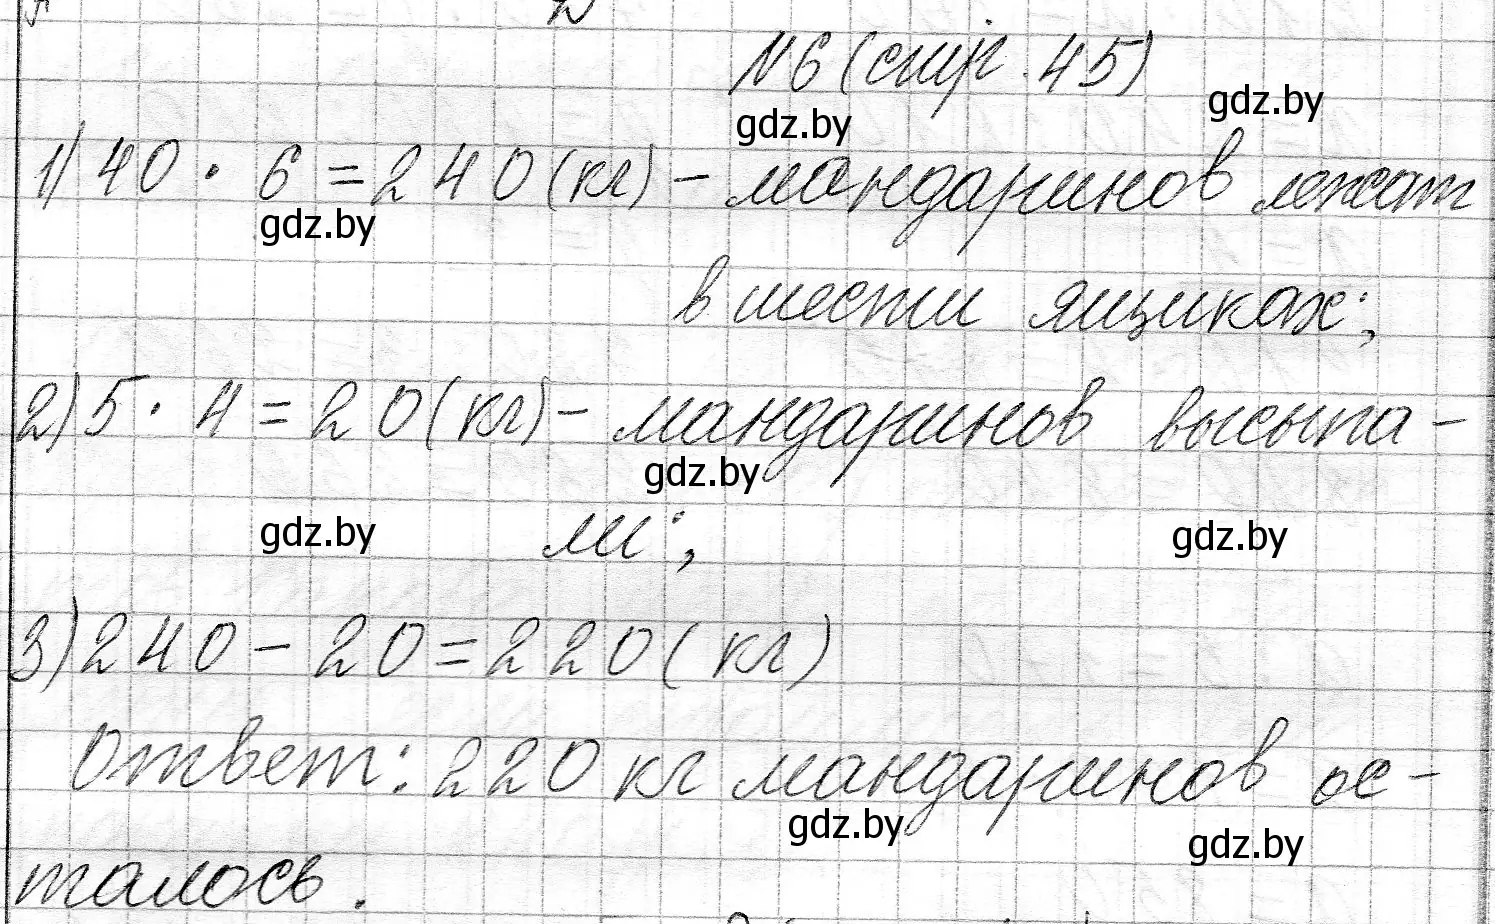 №6 (стр. 45)
gdz.by
gdz.by
1) 40 · 6 = 240 (кг) - мандаринов лежат
gdz.by
в шести ящиках;
2) 5 · 4 = 20 (кг) - мандаринов высыпа-
gdz.by
ли;
gdz.by
gdz.by
3) 240 - 20 = 220 (кг)
Ответ: 220 кг мандаринов ос-
gdz.by
gdz.by
талось.